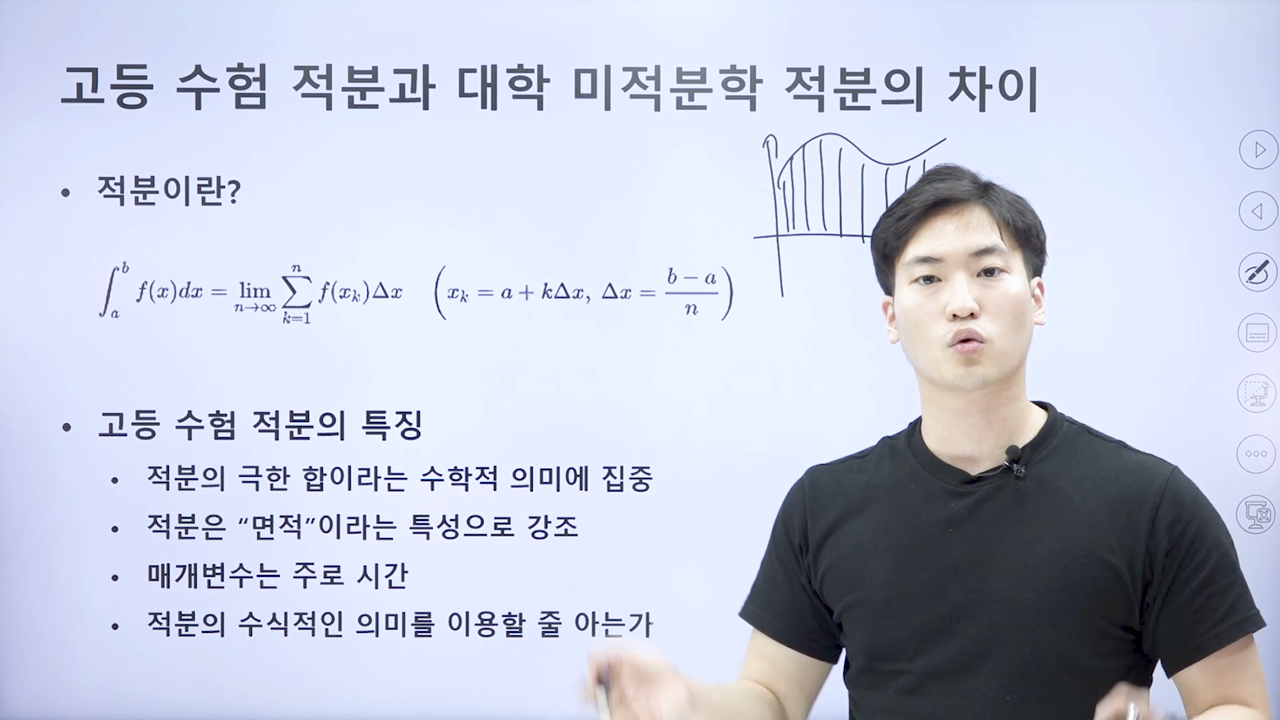 고등 수험 적분과 대학 미적분학 적분의 차이
• 적분이란?
∫_a^b f(x)dx = lim_{n→∞} ∑_{k=1}^{n} f(x_k)Δx (x_k = a + kΔx, Δx = \frac{b − a}{n})
• 고등 수험 적분의 특징
• 적분의 극한 합이라는 수학적 의미에 집중
• 적분은 “면적”이라는 특성으로 강조
• 매개변수는 주로 시간
• 적분의 수식적인 의미를 이용할 줄 아는가